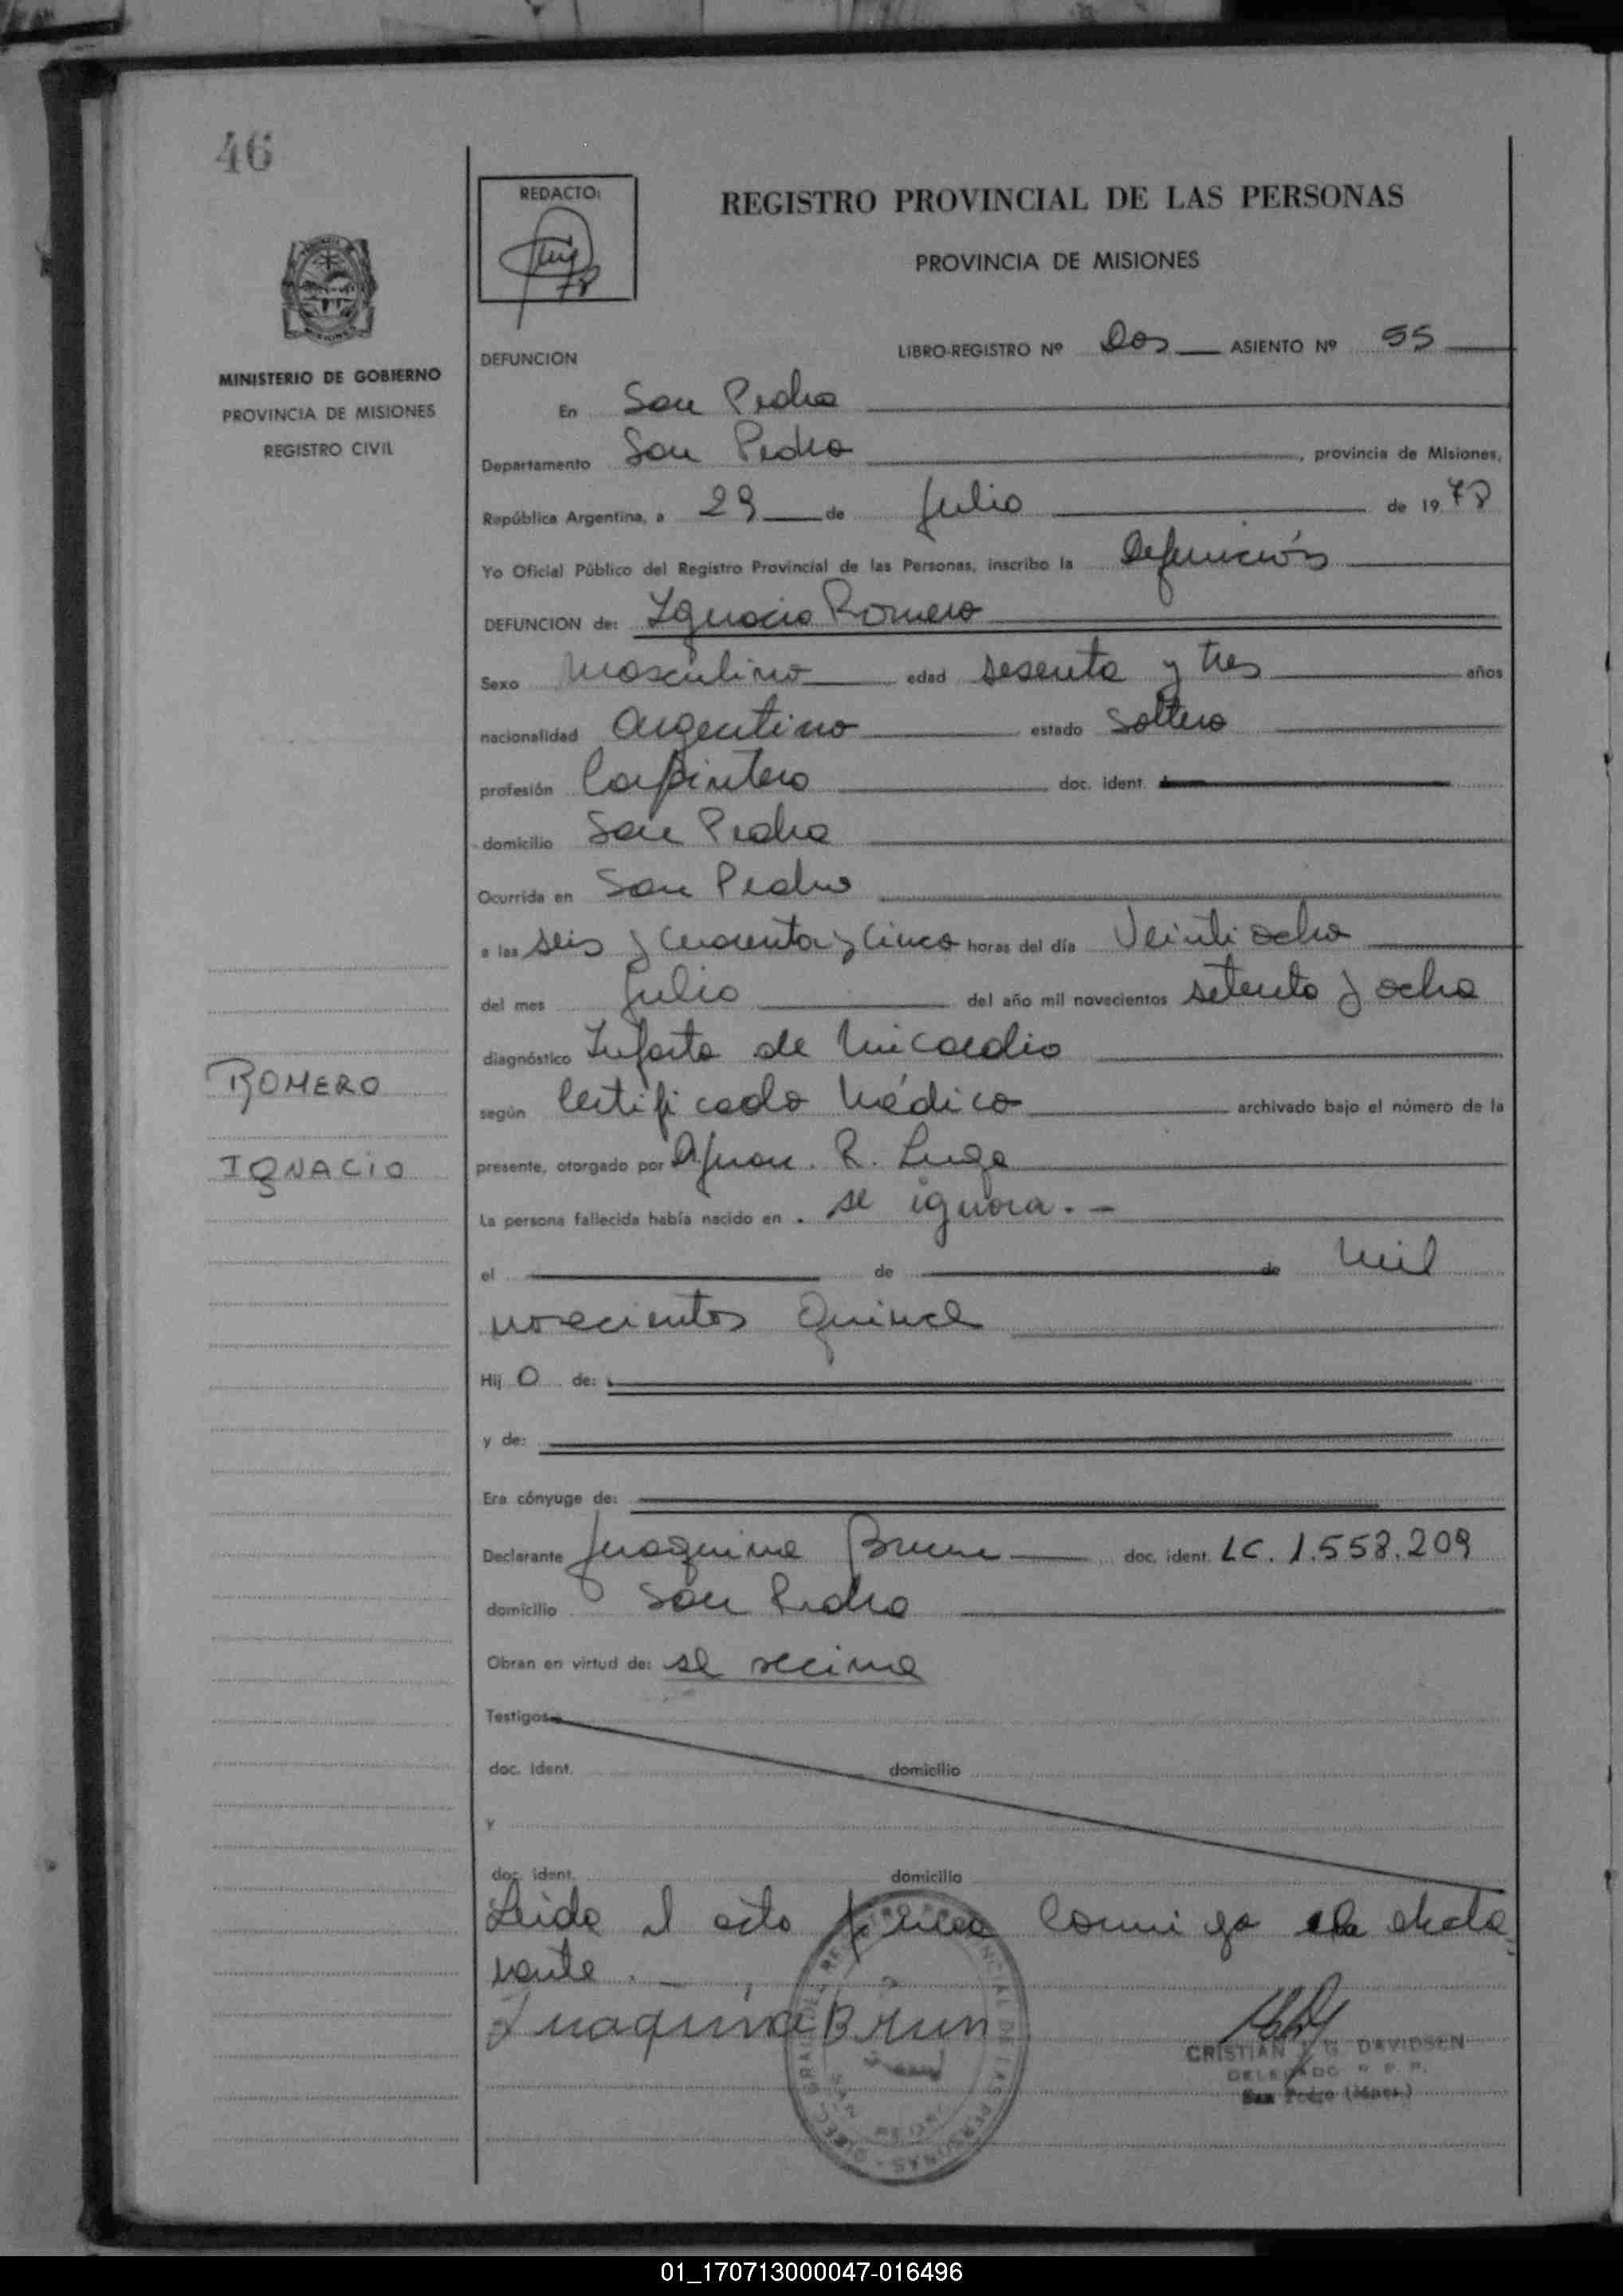 46
REDACTO:
78
REGISTRO PROVINCIAL DE LAS PERSONAS
PROVINCIA DE MISIONES
MINISTERIO DE GOBIERNO
PROVINCIA DE MISIONES
REGISTRO CIVIL
DEFUNCION
LIBRO-REGISTRO Nº Dos ASIENTO Nº 55
En San Pedro
Departamento San Pedro, provincia de Misiones,
República Argentina, a 29 de Julio de 1978
Yo Oficial Público del Registro Provincial de las Personas, inscribo la Defunción
DEFUNCION de: Ignacio Romero
Sexo Masculino edad sesenta y tres años
nacionalidad Argentino estado Soltero
profesión Carpintero doc. ident.
domicilio San Pedro
Ocurrida en San Pedro
a las seis y cuarenta y cinco horas del día Veintiocho
del mes Julio del año mil novecientos setenta y ocho
diagnóstico Infarto de Micardio
según Certificado Médico archivado bajo el número de la
presente, otorgado por R. Luga
La persona fallecida había nacido en . se ignora. -
el de de Mil
novecientos Quince
Hij O de:
y de:
Era cónyuge de:
Declarante Juaquina Brun doc. ident. LC. 1.558.209
domicilio San Pedro
Obran en virtud de: se vecina
Testigos
doc. ident. domicilio
y
doc. ident. domicilio
Leida el acto firma conmigo la decla
rante . -
Juaquina Brun
CRISTIAN G. DAVIDSEN
DELEGADO R. P. P.
San Pedro (Mnes.)
ROMERO
IGNACIO
01_170713000047-016496